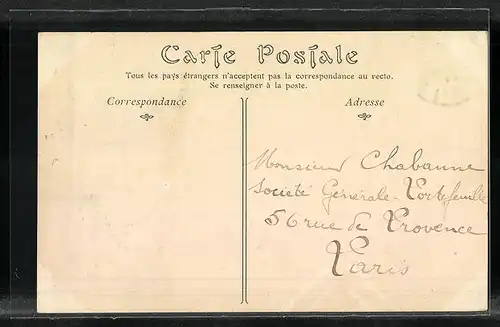 Carte Postale
Tous les pays étrangers n'acceptent pas la correspondance au recto.
Se renseigner à la poste.
Correspondance
Adresse
Monsieur Chabanne
Société Générale - Portefeuille
56 rue de Provence
Paris